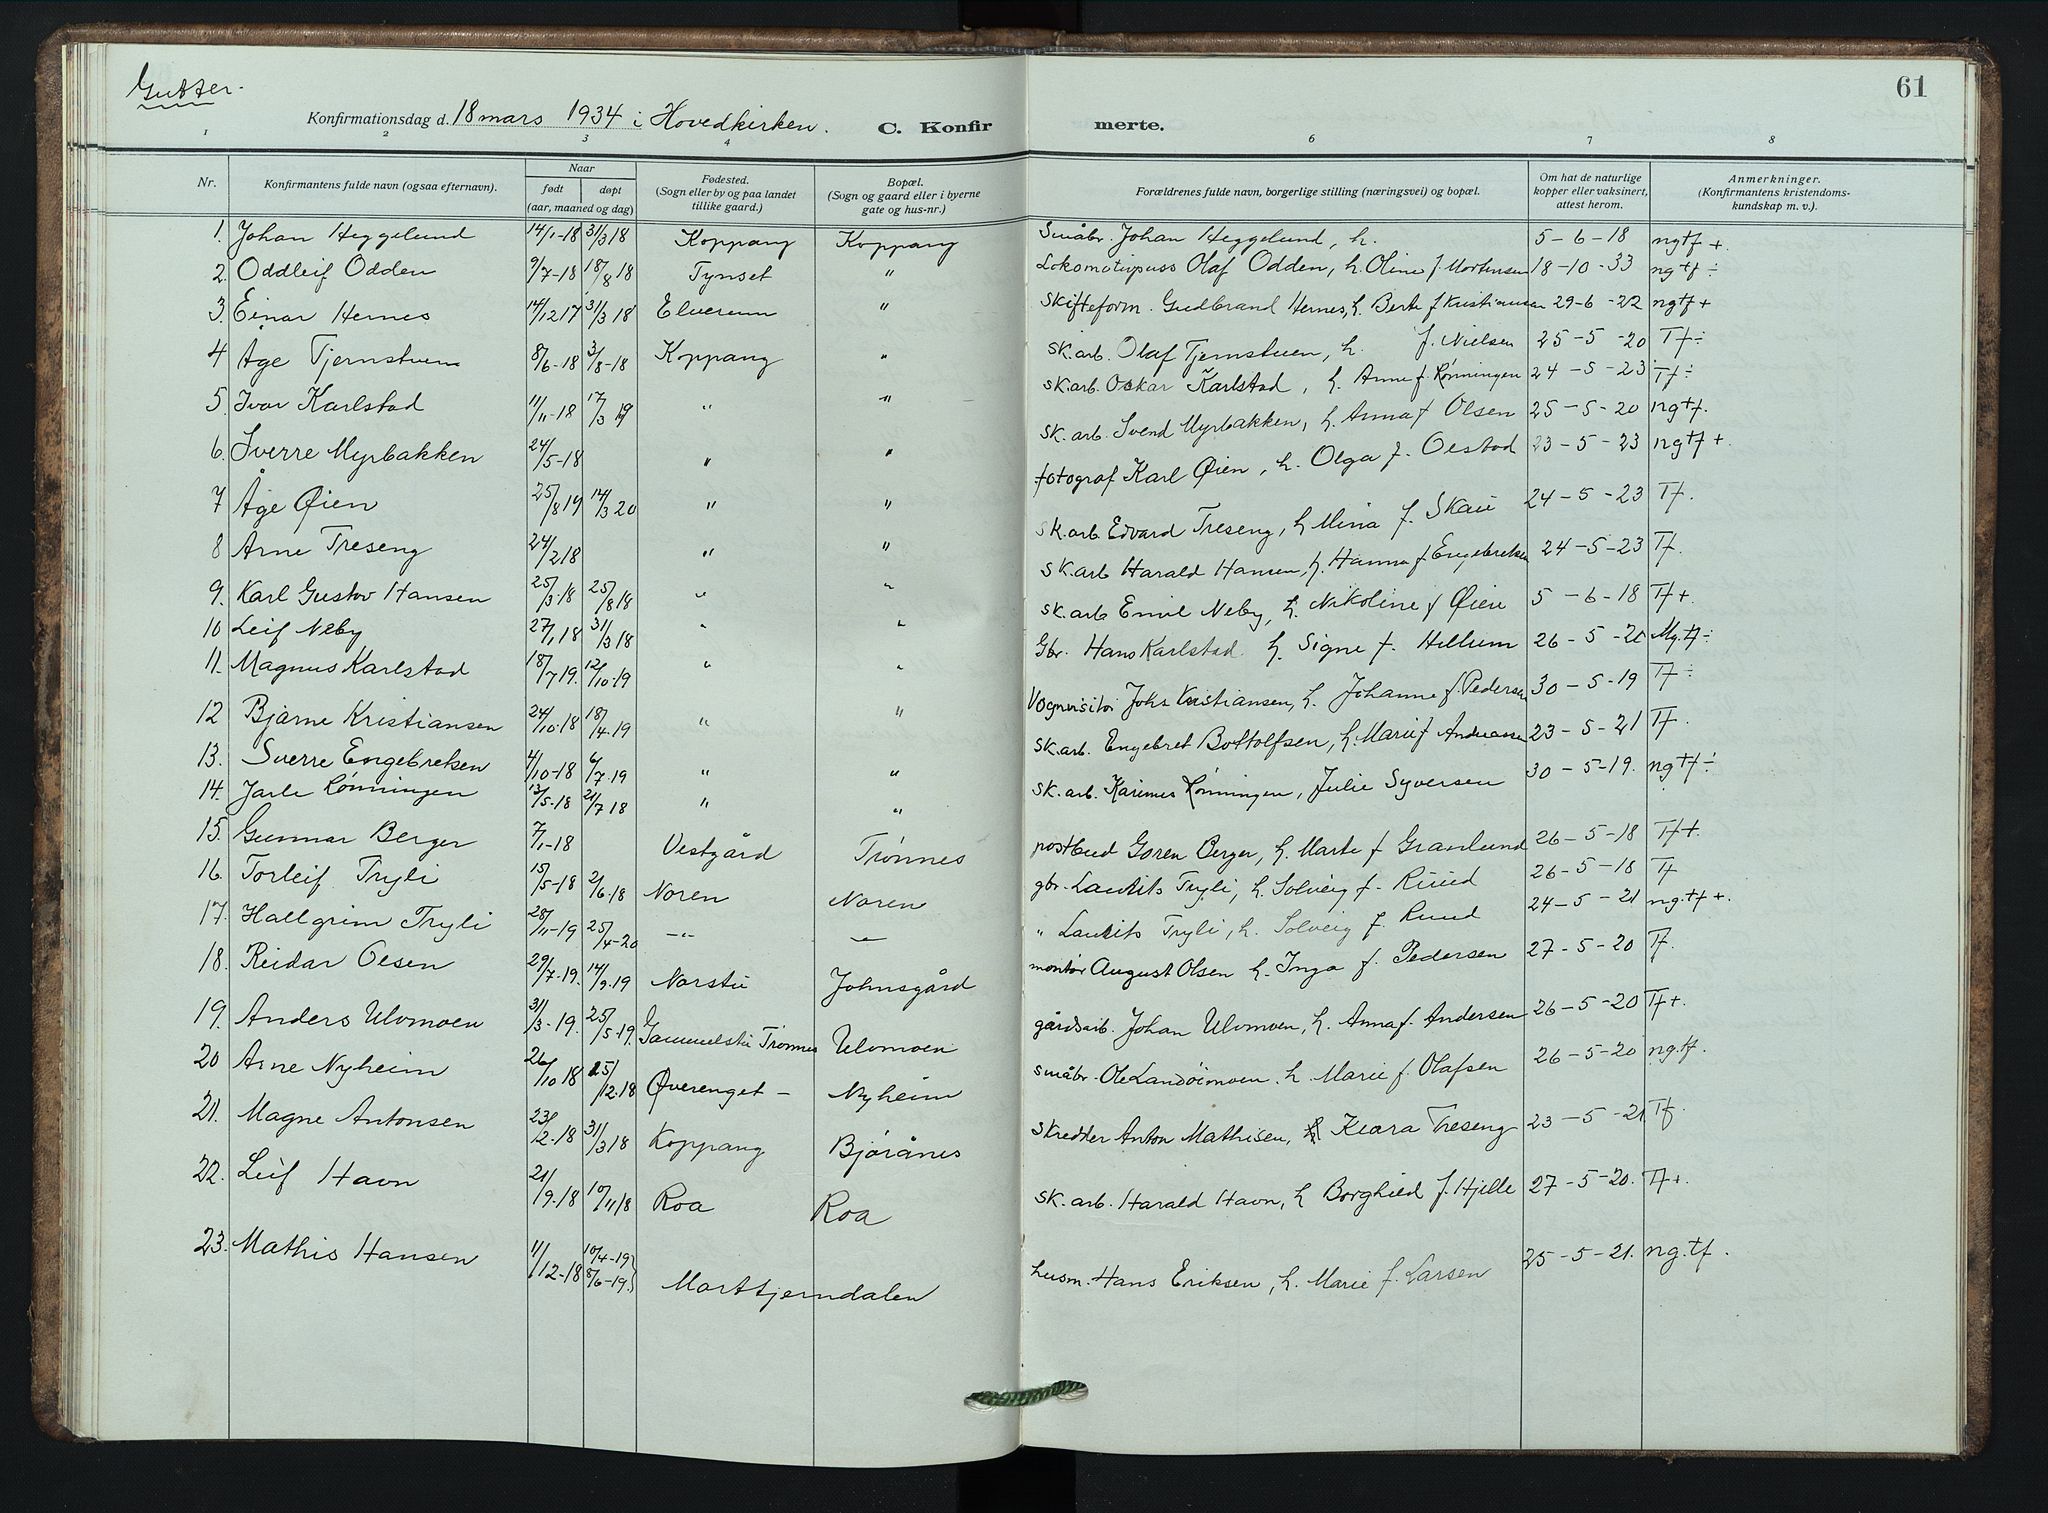 Gutter.
61
Konfirmationsdag d. 18 mars 1934 i Hovedkirken. C. Konfirmerte.
1 2 3 4 6 7 8
Nr. Konfirmantens fulde navn (ogsaa efternavn). Naar født døpt (aar, maaned og dag) Fødested. (Sogn eller by og paa landet tillike gaard.) Bopæl. (Sogn og gaard eller i byerne gate og hus-nr.) Forældrenes fulde navn, borgerlige stilling (næringsvei) og bopæl. Om hat de naturlige kopper eller vaksinert, attest herom. Anmerkninger. (Konfirmantens kristendomskundskap m. v.).
1. Johan Heggelund 14/1-18 31/3 18 Koppang Koppang Småbr. Johan Heggelund, h. 5-6-18 ngtf +
2. Oddleif Odden 9/7-18 18/8 18 Tynset " Lokomotivpuss Olaf Odden, h. Oline f. Mortensen 18-10-33 ngtf ÷
3. Einar Hernes 14/12 17 31/3 18 Elverum " Skifteform. Gudbrand Hernes, h. Berte f. Kristiansen 29-6-22 ngtf +
4 Åge Tjernstuen 8/6-18 3/8-18 Koppang " Sk.arb. Olaf Tjernstuen, h. f. Nielsen 25-5-20 Tf ÷
5. Ivar Karlstad 11/11-18 17/3 19 " " Sk.arb. Oskar Karlstad, h. Anne f. Rønningen 24-5-23 Tf ÷
6. Sverre Myrbakken 24/5-18 " " Sk.arb. Svend Myrbakken, h. Anna f. Olsen 25-5-20 ngtf.
7 Åge Øien 25/8 19 14/3 20 " " fotograf Karl Øien, h. Olga f. Olstad 23-5-23 ngtf +
8 Arne Treseng 24/2 18 " " Sk.arb. Edvard Treseng, h. Mina f. Skau 24-5-23 Tf.
9. Karl Gustav Hansen 25/3-18 25/8 18 " " Sk.arb Harald Hansen, h. Hanna f. Engebretsen 24-5-23 Tf.
10 Leif Neby 27/1 18 31/3 18 " " Sk.arb Emil Neby, h. Nikoline f. Øien 5-6-18 Tf +
11. Magnus Karlstad 18/7 19. 12/10-19 " " Gbr. Hans Karlstad h. Signe f. Hellum 26-5-20 Mg.tf ÷
12 Bjarne Kristiansen 24/10-18 18/4-19 " " Vognvisitør Johs Kristiansen, h. Johanne f. Pedersen 30-5-19 Tf ÷
13. Sverre Engebretsen 4/10-18 6/7-19 " " Sk.arb. Engebret Bottolfsen, h. Marie f. Andreassen 23-5-21 Tf.
14. Jarle Rønningen 13/5-18 21/7 18 " " Sk.arb. Karinus Rønningen, Julie Syversen 30-5-19. ngtf ÷
15. Gunnar Berger 7/1-18 Vestgård Trønnes postbud Goren Berger, h. Marte f. Granlund 26-5-18 Tf +.
16. Torleif Tryli 15/5-18 2/6.18 Noren Noren gbr. Lauritz Tryli, h. Solveig f. Ruud 26-5-18 Tf
17. Hallgrim Tryli 28/11-19 25/4-20 —"— — " Lauritz Tryli, h. Solveig f. Ruud 24-5-21 ng.tf +.
18. Reidar Olsen 29/7-19. 14/9-19 Norstu Johnsgård montør August Olsen h. Inga f. Pedersen 27-5-20 Tf.
19. Anders Ulvmoen 31/3-19. 25/5-19. Gammelstu Trønnes Ulvmoen gårdsarb. Johan Ulvmoen, h. Anna f. Andersen 26-5-20 Tf +.
20 Arne Nyheim 26/10 18 15/12-18 Øverenget - Nyheim småbr. Ole Landøimoen, h. Marie f. Olafsen 26-5-20 ng.tf.
21. Magne Antonsen 23/2-18 31/3 18 Koppang Bjørånes Skredder Anton Mathisen, h Klara Treseng 23-5-21 Tf.
22. Leif Havn 21/9-18 10/11 18 Roa Roa Sk.arb. Harald Havn, h Borghild f. Hjelle 27-5-20. Tf +.
23. Mathis Hansen 11/12-18 10/4-19 8/6-19 Mortjerndalen husm. Hans Eriksen, h. Marie f. Larsen 25-5-21. ng.tf.